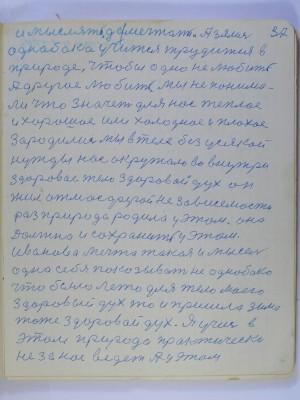 и мыслят, да мечтают. А земля 37
однабока учится трудится в
природе, чтобы одно не любить
А другое любить, мы не понима-
ли что значет для нас теплое
и хорошое или холодное и плохое
Зародились мы в теле без всякой
нужды нас окружало во внутри
здоровое тело здоровай дух он
жил от мое другой не зависемости
раз природа родила у этом. она
должна и сохранить у этом.
Иванова мечта такая и мысел
одна себя показывать не однобоко
что было лето для тело моего
здоровый дух то и пришла зима
тоже здоровай дух. Я учил в
этом природа практически
не за нос ведет А у этом